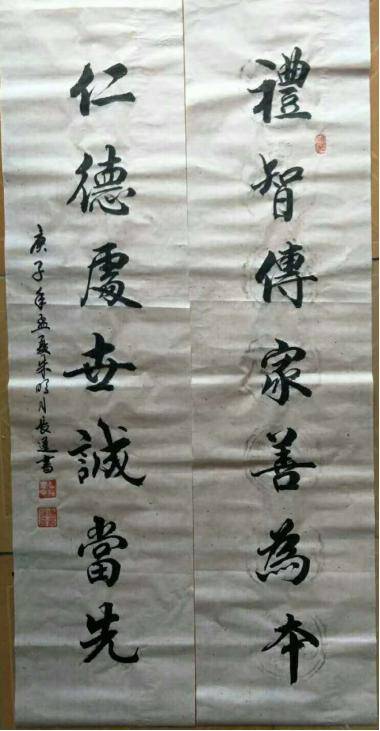 禮智傳家善為本
仁德處世誠當先
庚子年孟夏朱明月長運書